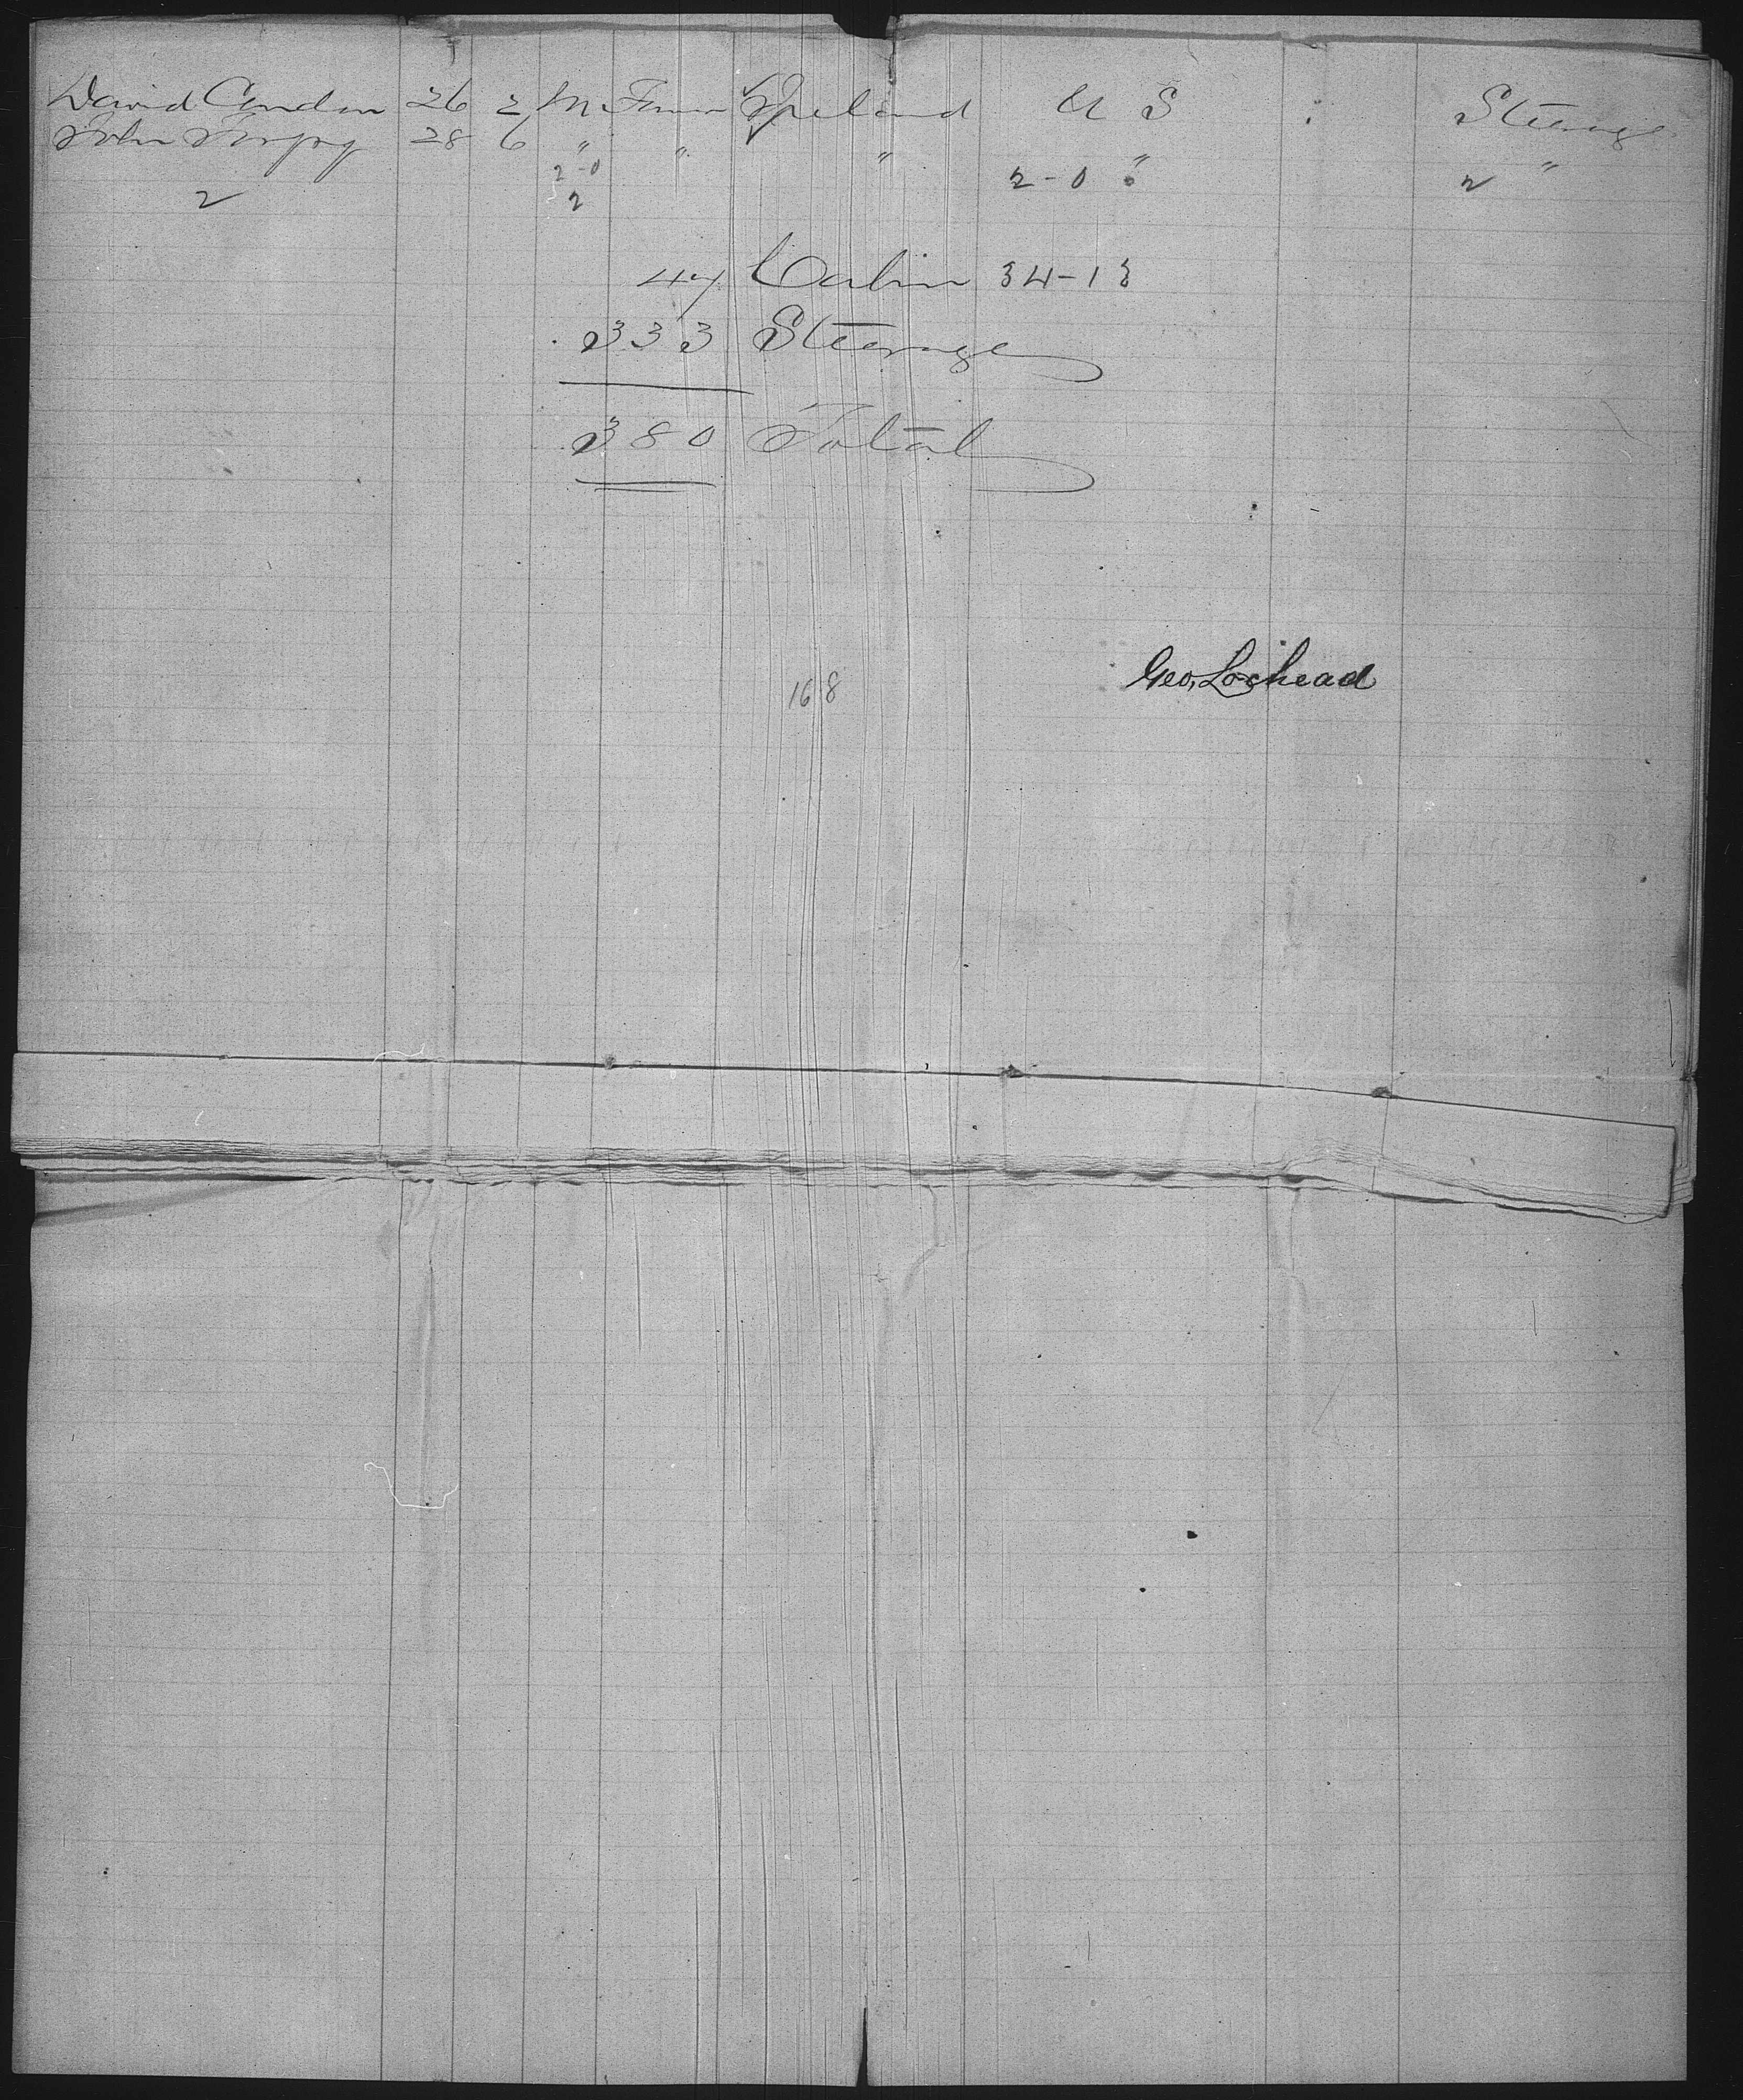 David Condon 26 2 M Farmer Ireland U S Steerage
John 28 6 " " " " "
2 2-0 2-0 2
2
47 Cabin 34-13
333 Steerage
380 Total
Geo. Lochead
168